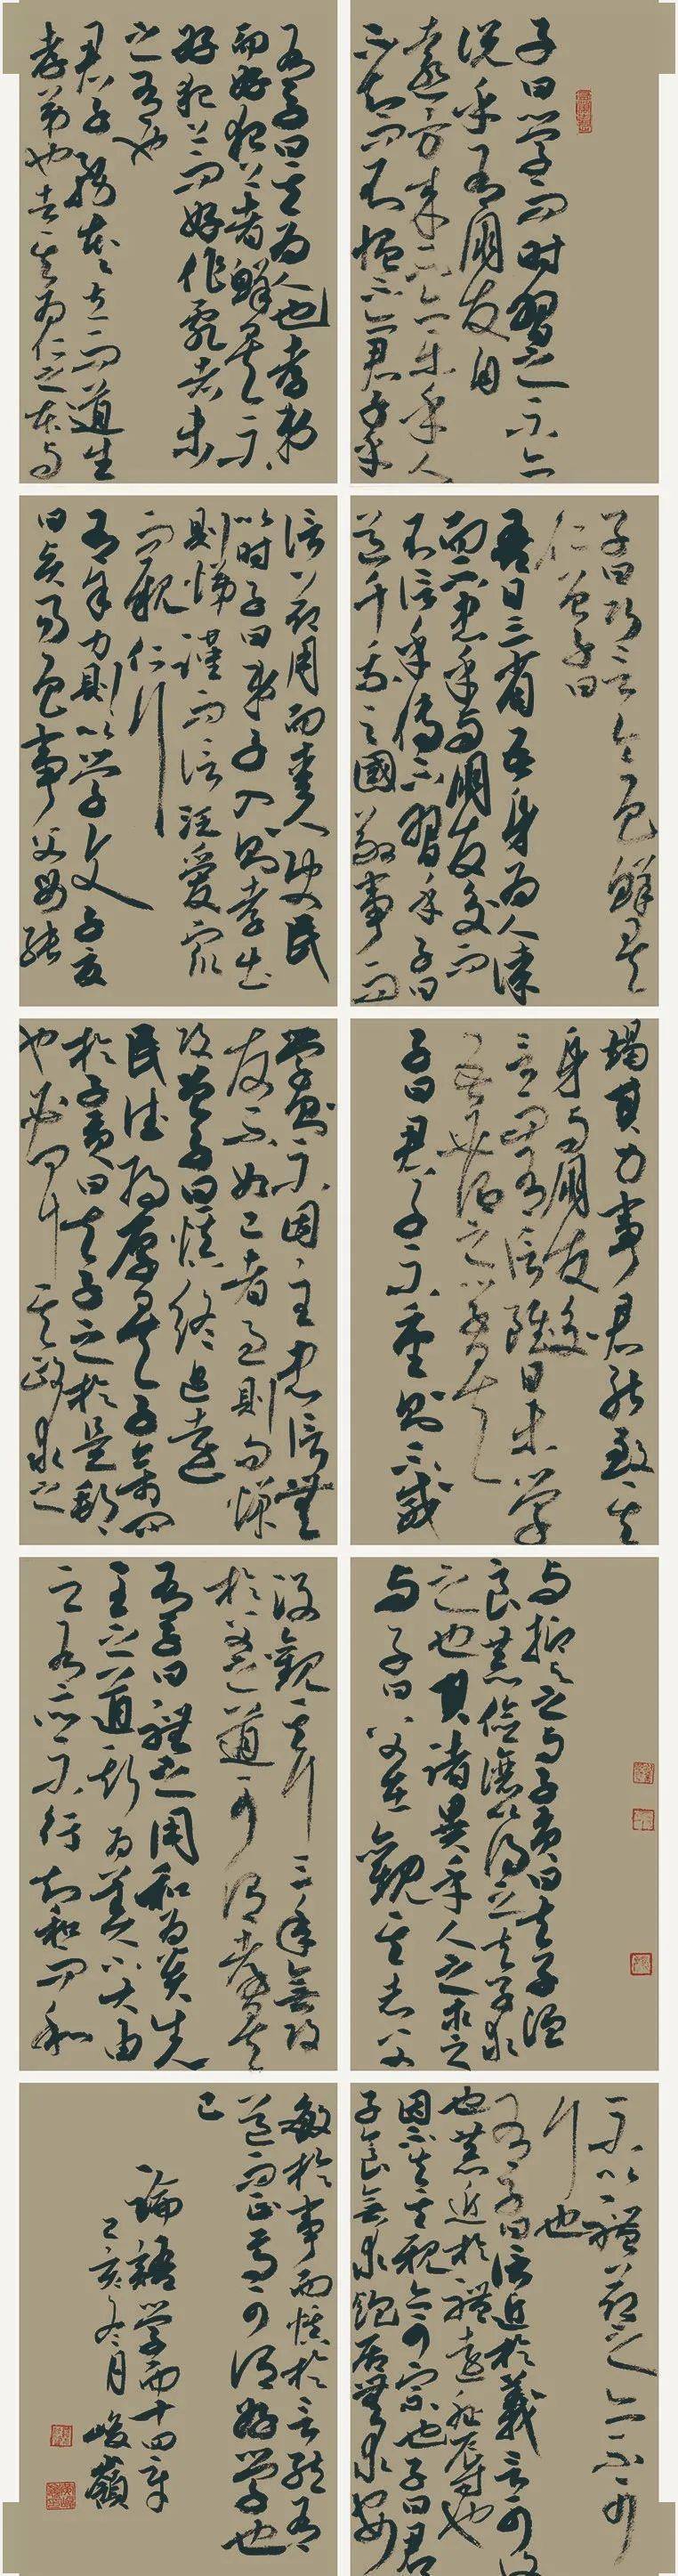 子曰学而时習之不亦
说乎有朋友自
遠方来不亦乐乎人
不知而不愠不亦君子乎
有子曰其为人也孝弟
而好犯上者鲜矣不
好犯上而好作亂者未
之有也
君子務本本立而道生
孝弟也者其为仁之本与
子曰巧言令色鲜矣
仁曾子曰
吾日三省吾身为人谋
而不忠乎与朋友交而
不信乎傳不習乎子曰
道千乘之國敬事而
信节用而愛人使民
以时子曰弟子入则孝出
则悌谨而信泛愛衆
而親仁行
有余力则以学文子夏
曰贤贤易色事父母能
竭其力事君能致其
身与朋友交
言而有信雖曰未学
吾必谓之学矣
子曰君子不重则不威
学则不固主忠信無
友不如己者过则勿惮
改曾子曰慎终追遠
民德归厚矣子禽问
於子贡曰夫子之於是邦
也必聞其政求之
与抑与之与子贡曰夫子温
良恭俭讓以得之夫子求
之也其诸異乎人之求之
与子曰父在觀其志父
没觀其行三年無改
於父之道可谓孝矣
有子曰禮之用和为贵先
王之道斯为美小大由
之有所不行知和而和
不以禮节之亦不可
行也
有子曰信近於義言可復
也恭近於禮遠耻辱也
因不失其親亦可宗也子曰君
子食無求飽居無求安
敏於事而慎於言就有
道而正焉可谓好学也
已
論語学而十四章
己亥冬月峻嶺